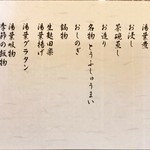 湯葉煮
お浸し
茶碗蒸し
お造り
名物 とうふしゅうまい
おしのぎ
鍋物
生麩田楽
湯葉揚げ
湯葉グラタン
湯葉吸物
季節の飯物